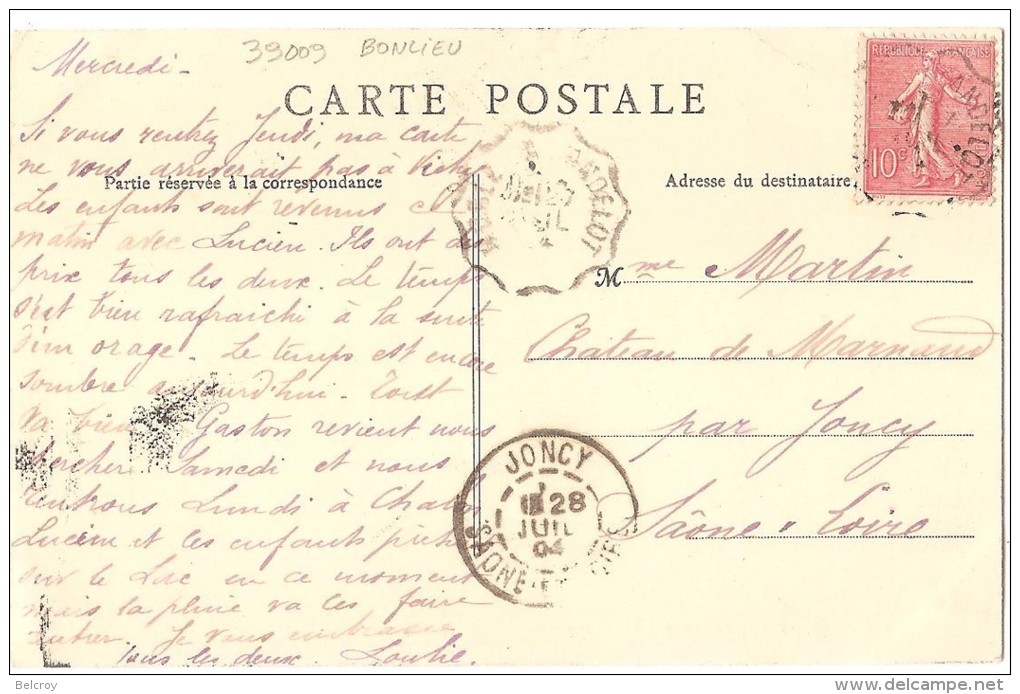 39009 BONLIEU
CARTE POSTALE
Partie réservée à la correspondance
Adresse du destinataire
RÉPUBLIQUE FRANÇAISE
10c
ANDELOT
ANDELOT
Mercredi -
Si vous rentrez Jeudi, ma carte
ne vous arriverait pas à Vichy
Les enfants sont revenus ce
matin avec Lucien. Ils ont des
prix tous les deux. Le temps
s'est bien rafraichi à la suite
d'un orage. Le temps est encore
sombre aujourd'hui. Tout
va bien Gaston revient nous
chercher Samedi et nous
rentrons Lundi à Chalon
Lucien et les enfants pêchent
sur le Lac en ce moment
mais la pluie va les faire
rentrer. Je vous embrasse
tous les deux.
Mme Martin
Château de Marnand
par Joncy
Saône & Loire
JONCY
28
JUIL
04
SAONE-ET-LOIRE
Belcroy
delcampe.net